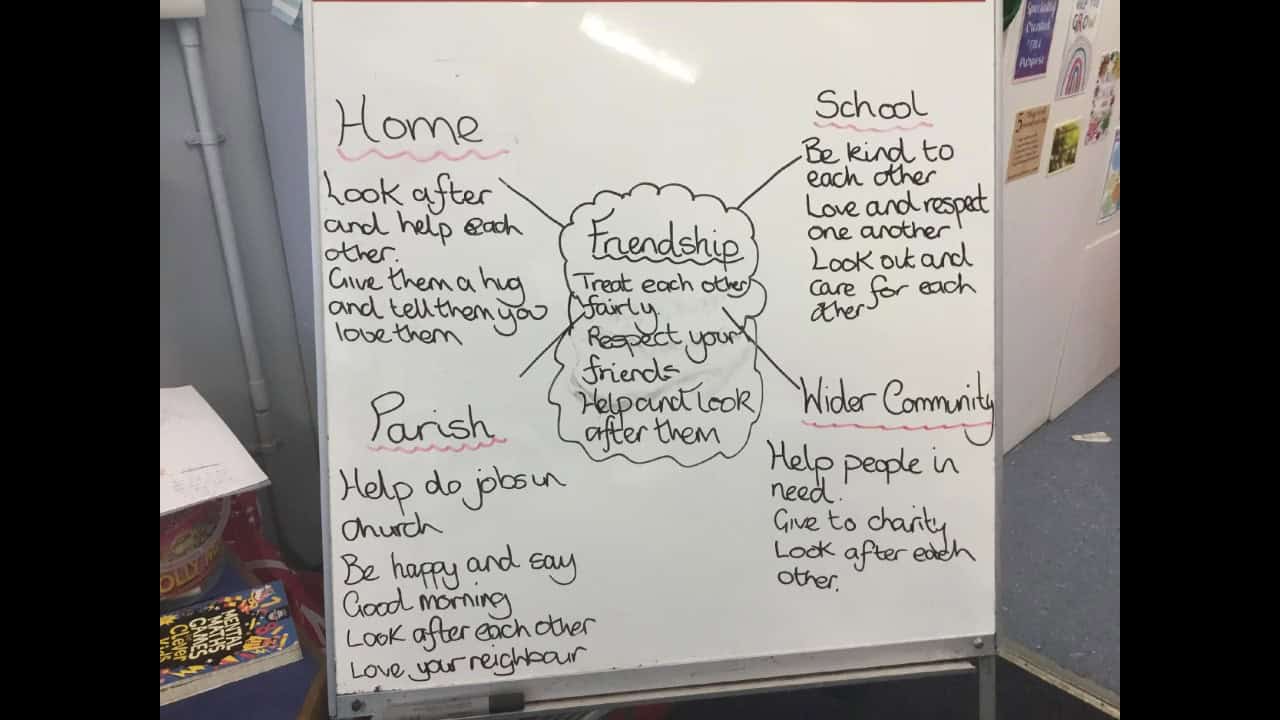 Home
Look after
and help each
other.
Give them a hug
and tell them you
love them
School
Be kind to
each other
Love and respect
one another
Look out and
care for each
other
Friendship
Treat each other
fairly
Respect your
friends
Help and look
after them
Parish
Help do jobs in
church
Be happy and say
Good morning
Look after each other
Love your neighbour
Wider Community
Help people in
need.
Give to charity
Look after each
other.
MENTAL
MATHS
GAMES
Clever
Kids
GROW